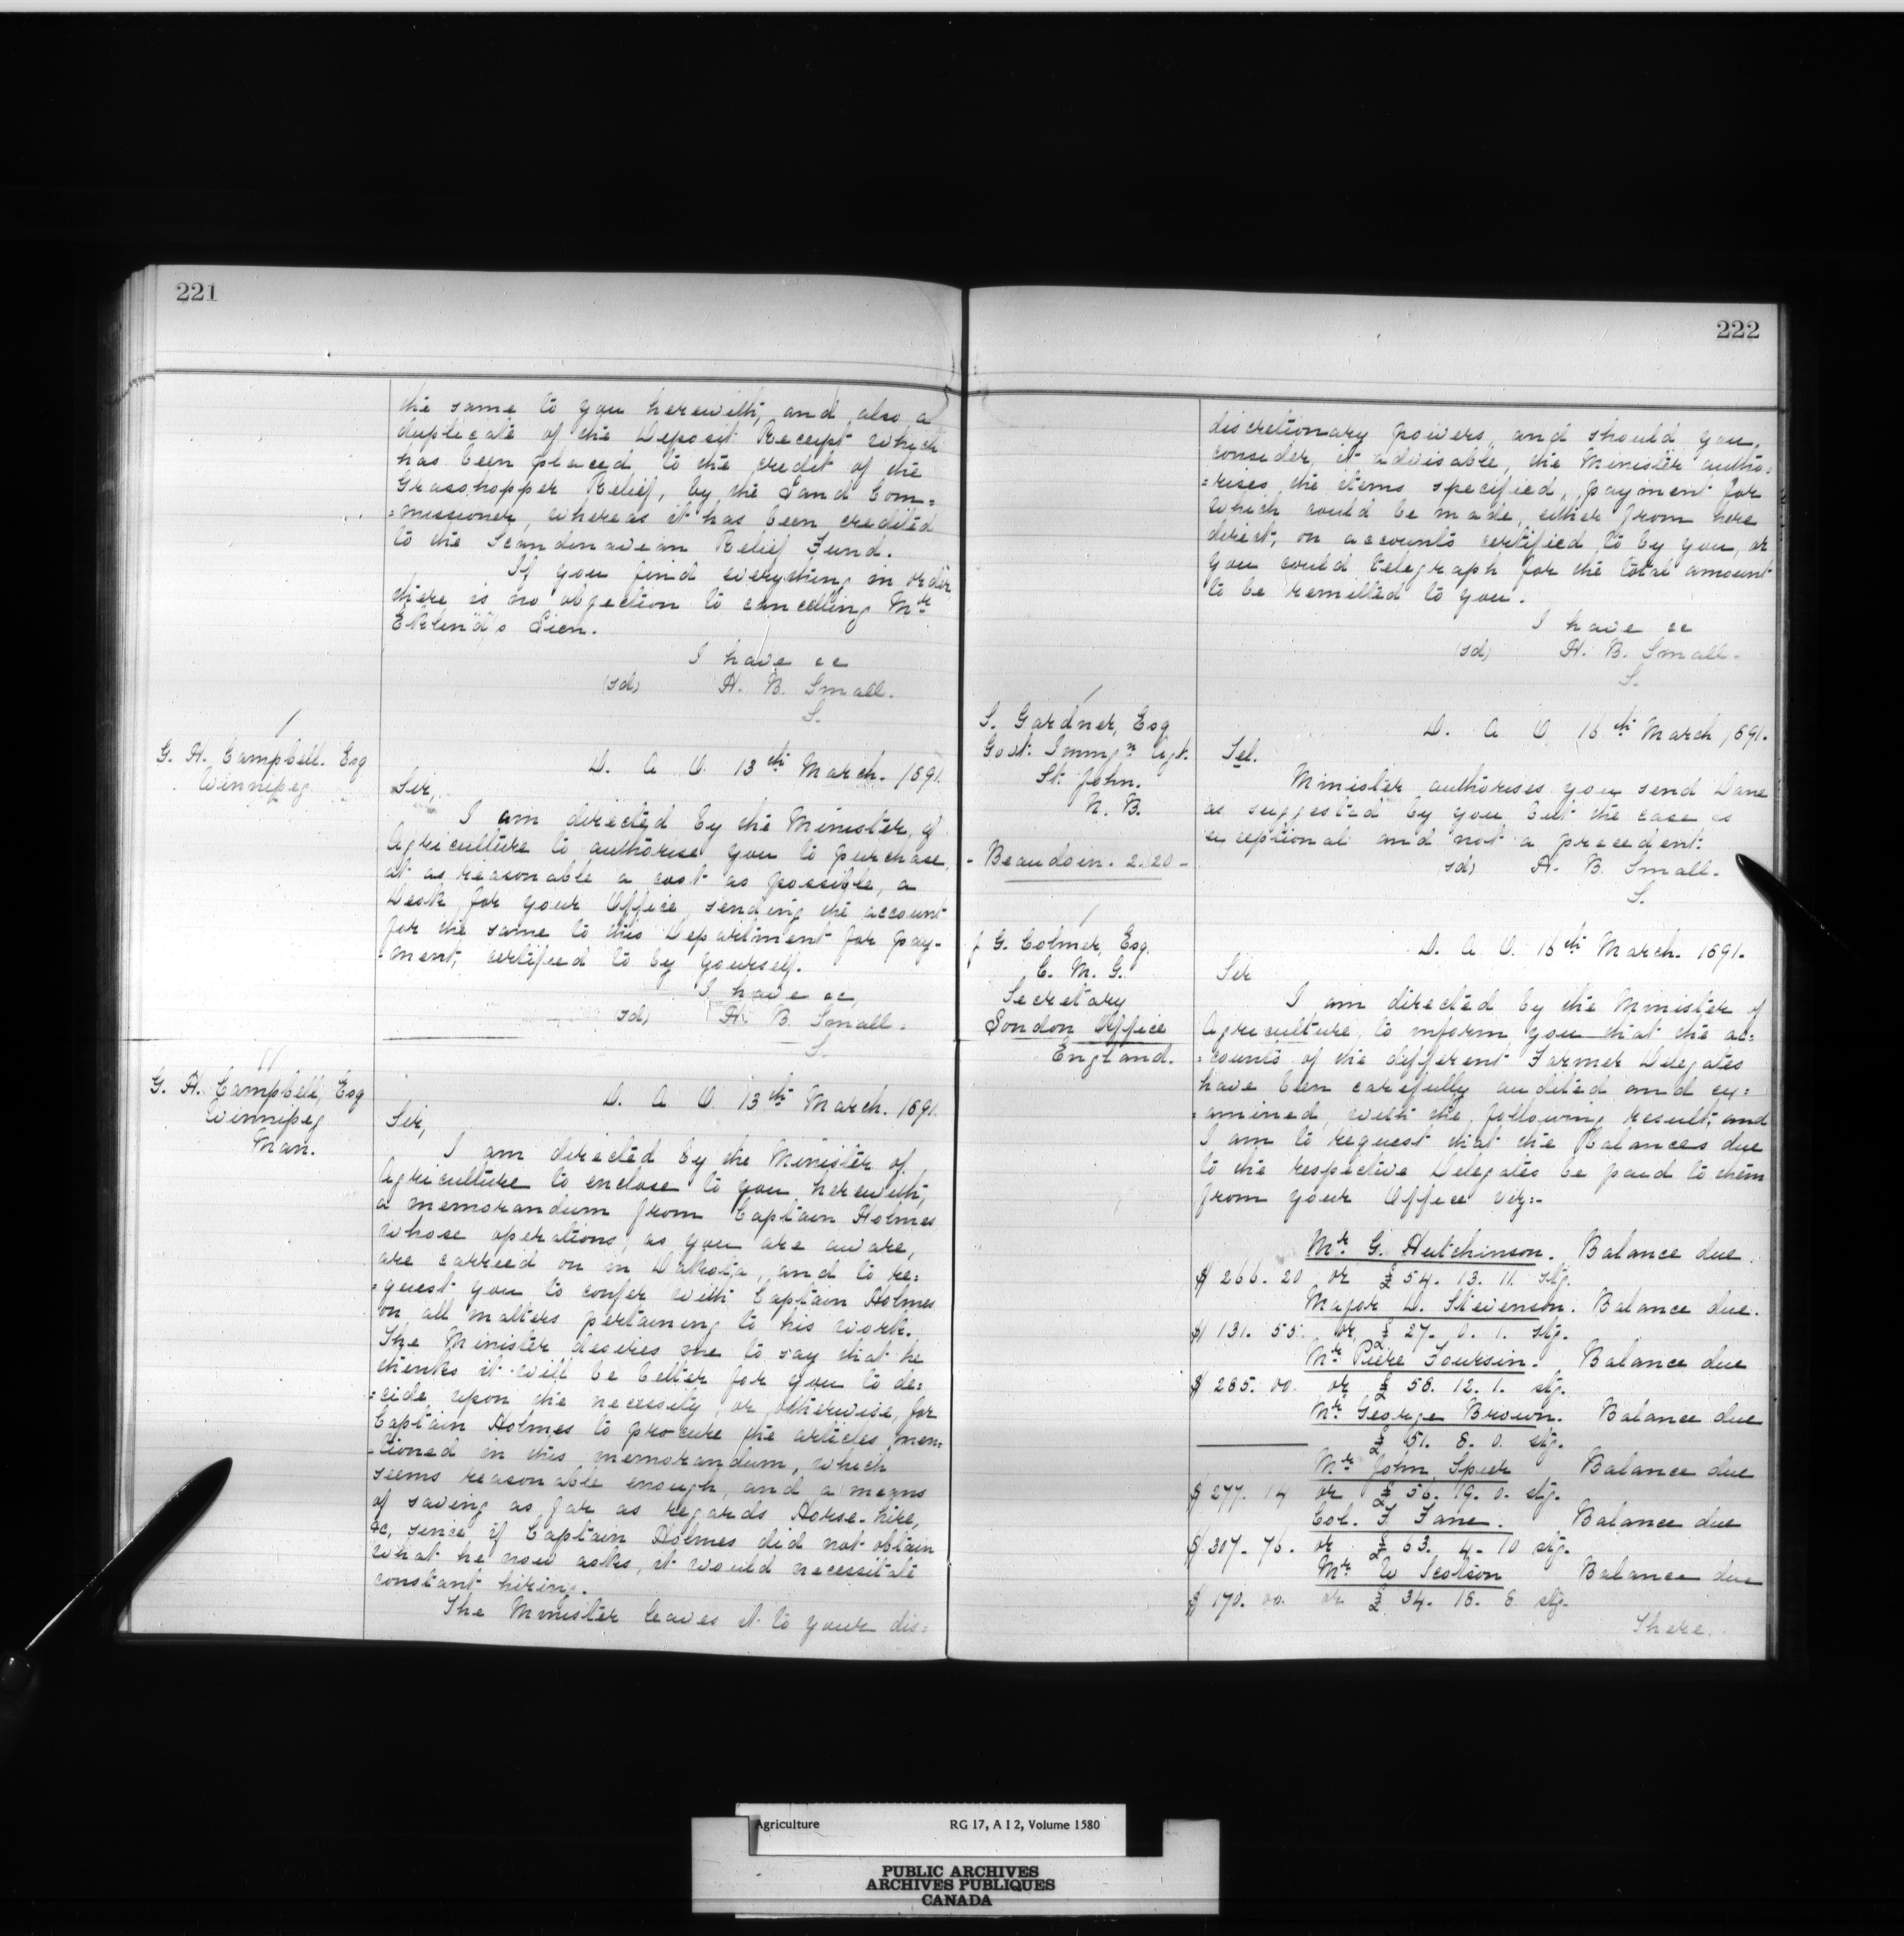 221
the same to you herewith, and also a
duplicate of the Deposit Receipt which
has been placed to the credit of the
Grasshopper Relief, by the Land Com=
=missioner, whereas it has been credited
to the Scandinavean Relief Fund.
If you find everything in order
there is no objection to cancelling Mr
Eklund's Lien.
I have &c
(sd) H. B. Small.
S.
G. H. Campbell. Esq
Winnipeg
D. A O. 13th March. 1891.
Sir,
I am directed by the Minister of
Agriculture to authorise you to purchase,
at as reasonable a cost as possible, a
Desk for your Office, sending the account
for the same to this Department for pay-
-ment, certified to by yourself.
I have &c,
sd) H. B. Small.
S.
G. H. Campbell, Esq
Winnipeg
Man.
D. A O 13th March. 1891.
Sir,
I am directed by the Minister of
Agriculture to enclose to you herewith,
a memorandum from Captain Holmes
whose operations, as you are aware,
are carried on in Dakota, and to re=
=quest you to confer with Captain Holmes
on all matters pertaining to his work.
The Minister desires me to say that he
thinks it will be better for you to de=
=cide upon the necessity, or otherwise, for
Captain Holmes to procure the articles men=
-tioned in this memorandum, which
seems reasonable enough, and a means
of saving as far as regards Horse-hire,
&c, since if Captain Holmes did not obtain
what he now asks, it would necessitate
constant hiring.
The Minister leaves it to your dis=
222
discretionary powers, and should you,
consider it advisable, the Minister autho=
=rises the items specified, payment for
which could be made, either from here
direct, on accounts certified to by you, or
you could telegraph for the total amount
to be remitted to you.
I have &c
(sd) H. B. Small.
S.
S. Gardner, Esq
Govt. Immign Agt.
St. John.
N. B.
D. A O 16th March 1891.
Tel.
Minister authorises you send Dane
as suggested by you but the case is
exceptional and not a precedent.
sd) H. B. Small.
S.
- Beaudoin. 2.20 -
J G. Colmer, Esq.
C. M. G.
Secretary
London Office
England.
D. A O. 16th March. 1891.
Sir
I am directed by the Minister of
Agriculture to inform you that the ac=
=counts of the different Farmer Delegates
have been carefully audited and ex=
=amined, with the following result, and
I am to request that the Balances due
to the respective Delegates be paid to them
from your Office viz:-
Mr G. Hutchinson. Balance due
$ 266. 20 or £ 54. 13. 11. stg.
Major D. Stevenson. Balance due.
$ 131. 55. or £ 27. 0. 1. stg.
Mr Piere Foursin. Balance due
$ 285. 00. or £ 58. 12. 1. stg.
Mr George Brown. Balance due
£ 51. 8. 0. stg.
Mr John Speir Balance due
$ 277. 14 or £ 56. 19. 0. stg.
Col. F. Fane. Balance due
$ 307. 76. or £ 63. 4. 10 stg.
Mr W Scotson Balance due
$ 170. 00. or £ 34. 18. 8. stg.
There.
Agriculture RG 17, A I 2, Volume 1580
PUBLIC ARCHIVES
ARCHIVES PUBLIQUES
CANADA